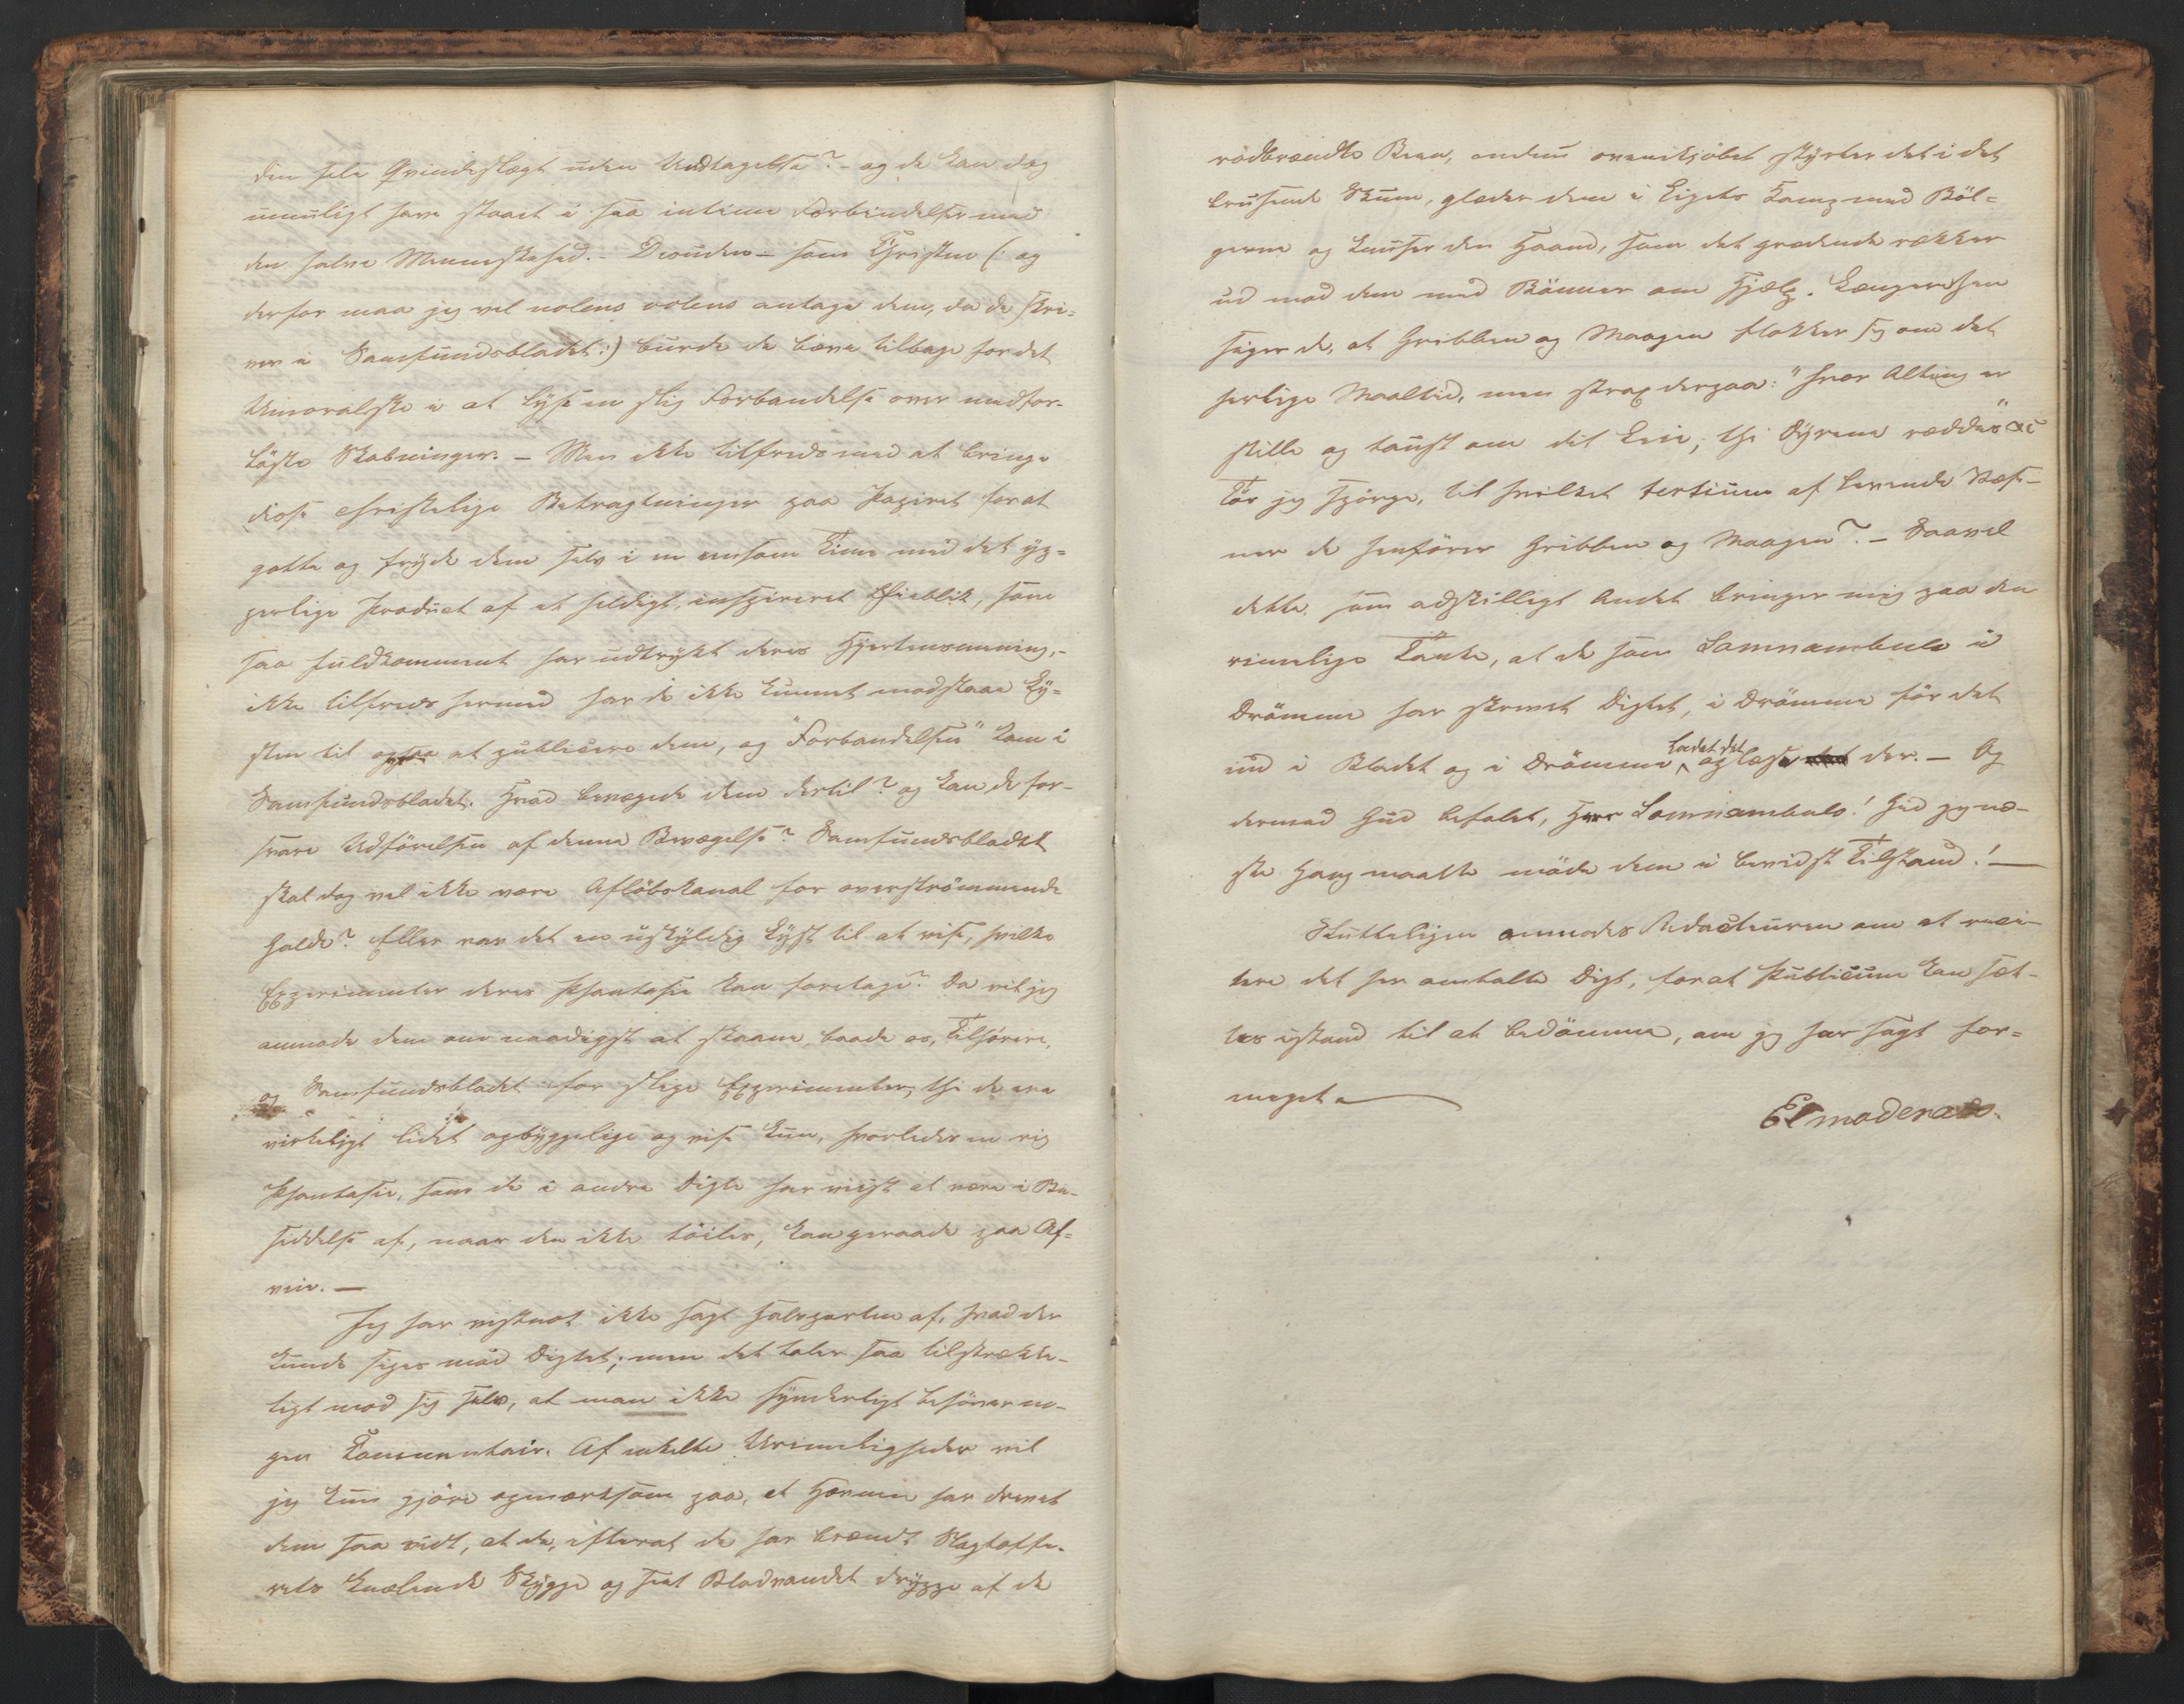 den hele Qvindeslægt uden Undtagelse? - og de kan dog
umuligt have staaet i saa intime Forbindelser med
den halve Menneskehed. - Desuden - som Christen (: og
derfor maa jeg vel nolens volens antage dem, da de skri-
ver i Samfundsbladet :) burde de bæve tilbage for det
Umoralske i at lyse en slig Forbandelse over medfor-
løste Skabninger. - Men ikke tilfreds med at bringe
disse christelige Betragtninger paa Papiret for at
gotte og fryde dem selv i en eensom Time med det yp-
perlige Product af et heldigt, inspireret Øieblik, som
saa fuldkomment har udtrykt deres Hjertensmening, -
ikke tilfreds hermed har de ikke kunnet modstaae Ly-
sten til ogsaa at publicere dem, og "Forbandelsen" kom i
Samfundsbladet. Hvad bevægede dem dertil? og kan de for-
svare Udførelsen af denne Bevægelse? Samfundsbladet
skal dog vel ikke være Afløbskanal for overstrømmende
Galde? Eller var det en uskyldig Lyst til at vise, hvilke
Experimenter deres Phantasie kan foretage? Da vil jeg
anmode dem om naadigst at skaane baade os, Tilhørere,
og Samfundsbladet for slige Experimenter, thi de ere
virkeligt lidet opbyggelige og vise kun, hvorledes en rig
Phantasie, som de i andre Digte har viist at være i Be-
siddelse af, naar den ikke tøiles, kan geraade paa Af-
veie. -
Jeg har vistnok ikke sagt Halvparten af, hvad der
kunde siges mod Digtet; men det taler saa tilstrække-
ligt mod sig selv, at man ikke synderligt behøver no-
gen Commentair. Af enkelte Urimeligheder vil
jeg kun gjøre opmærksom paa, at Hævnen har drevet
dem saa vidt, at de, efterat de har brændt Slagtoffe-
rets knælende Skygge og seet Blodvandet dryppe af de
rødbrændte Been, endnu ovenikjøbet styrter det i det
brusende Skum, glæder dem i Ligets Kamp med Böl-
gerne og knuser den Haand, som det grædende rækker
ud mod dem med Bönner om Hjælp. Længere hen
siger de, at Gribben og Maagen flokker sig om det
herlige Maaltid, men strax derpaa: "hvor Alting er
stille og taust om dit Leie, thi Dyrene ræddes" &c
Tør jeg spørge, til hvilket tertium af levende Væse-
ner de henfører Gribben og Maagen? - Saavel
dette, som adskilligt Andet bringer mig paa den
rimelige Tanke, at de som Somnambule i
Drømme har skrevet Digtet, i Drømme før det
ind i Bladet og i Drømme ladet det oplæse der. - Og
dermed Gud befalet, Herr Somnambule! Gid jeg næ-
ste Gang maatte møde dem i bevidst Tilstand! -
Slutteligen anmodes Redacteuren om at reci-
tere det her omtalte Digt, for at Publicum kan sæt-
tes istand til at bedømme, om jeg har sagt for-
meget.
El moderado.